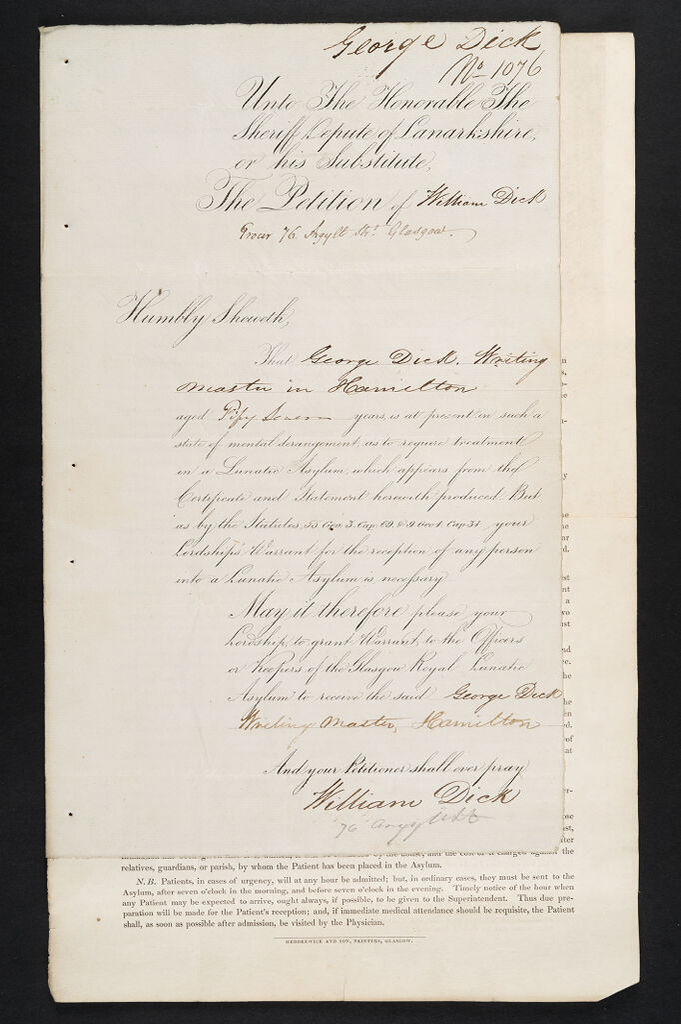 George Dick
No 1076
Unto The Honorable The
Sheriff Depute of Lanarkshire,
or his Substitute,
The Petition of William Dick
Grocer 76 Argyll Str. Glasgow.
Humbly Sheweth,
That George Dick. Writing
Master in Hamilton
aged Fifty Seven years, is at present in such a
state of mental derangement, as to require treatment
in a Lunatic Asylum, which appears from the
Certificate and Statement herewith produced. But
as by the Statutes, 55 Geo. 3. Cap. 69. & 9 Geo 4 Cap. 34 your
Lordship's Warrant for the reception of any person
into a Lunatic Asylum is necessary
May it therefore please your
Lordship, to grant Warrant, to the Officers
or Keepers of the Glasgow Royal Lunatic
Asylum to receive the said George Dick
Writing Master, Hamilton
And your Petitioner shall ever pray
William Dick
76
relatives, guardians, or parish, by whom the Patient has been placed in the Asylum.
N.B. Patients, in cases of urgency, will at any hour be admitted; but, in ordinary cases, they must be sent to the
Asylum, after seven o'clock in the morning, and before seven o'clock in the evening. Timely notice of the hour when
any Patient may be expected to arrive, ought always, if possible, to be given to the Superintendent. Thus due pre-
paration will be made for the Patient's reception; and, if immediate medical attendance should be requisite, the Patient
shall, as soon as possible after admission, be visited by the Physician.
HEDDERWICK AND SON, PRINTERS, GLASGOW.